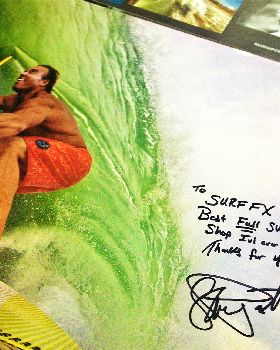 To SURF FX
Best Full Su
Shop I've ever
Thanks for y